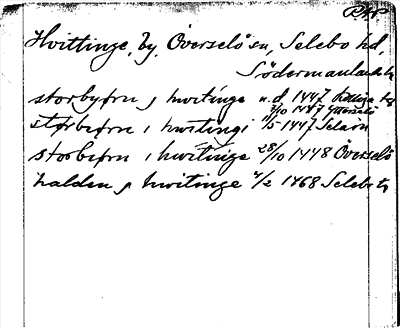 RAP
Hvittinge, by, Överselö sn, Selebo hd,
Södermanlands
storbyørn j hwitinge u.d 1447
2/10 1447 Ytterselö
størbiørn i hwitingi 1/5 1447 Selaön
storbiørn i hwitinge 28/10 1448 Överselö
halden j hwitinge 4/2 1468 Selebo